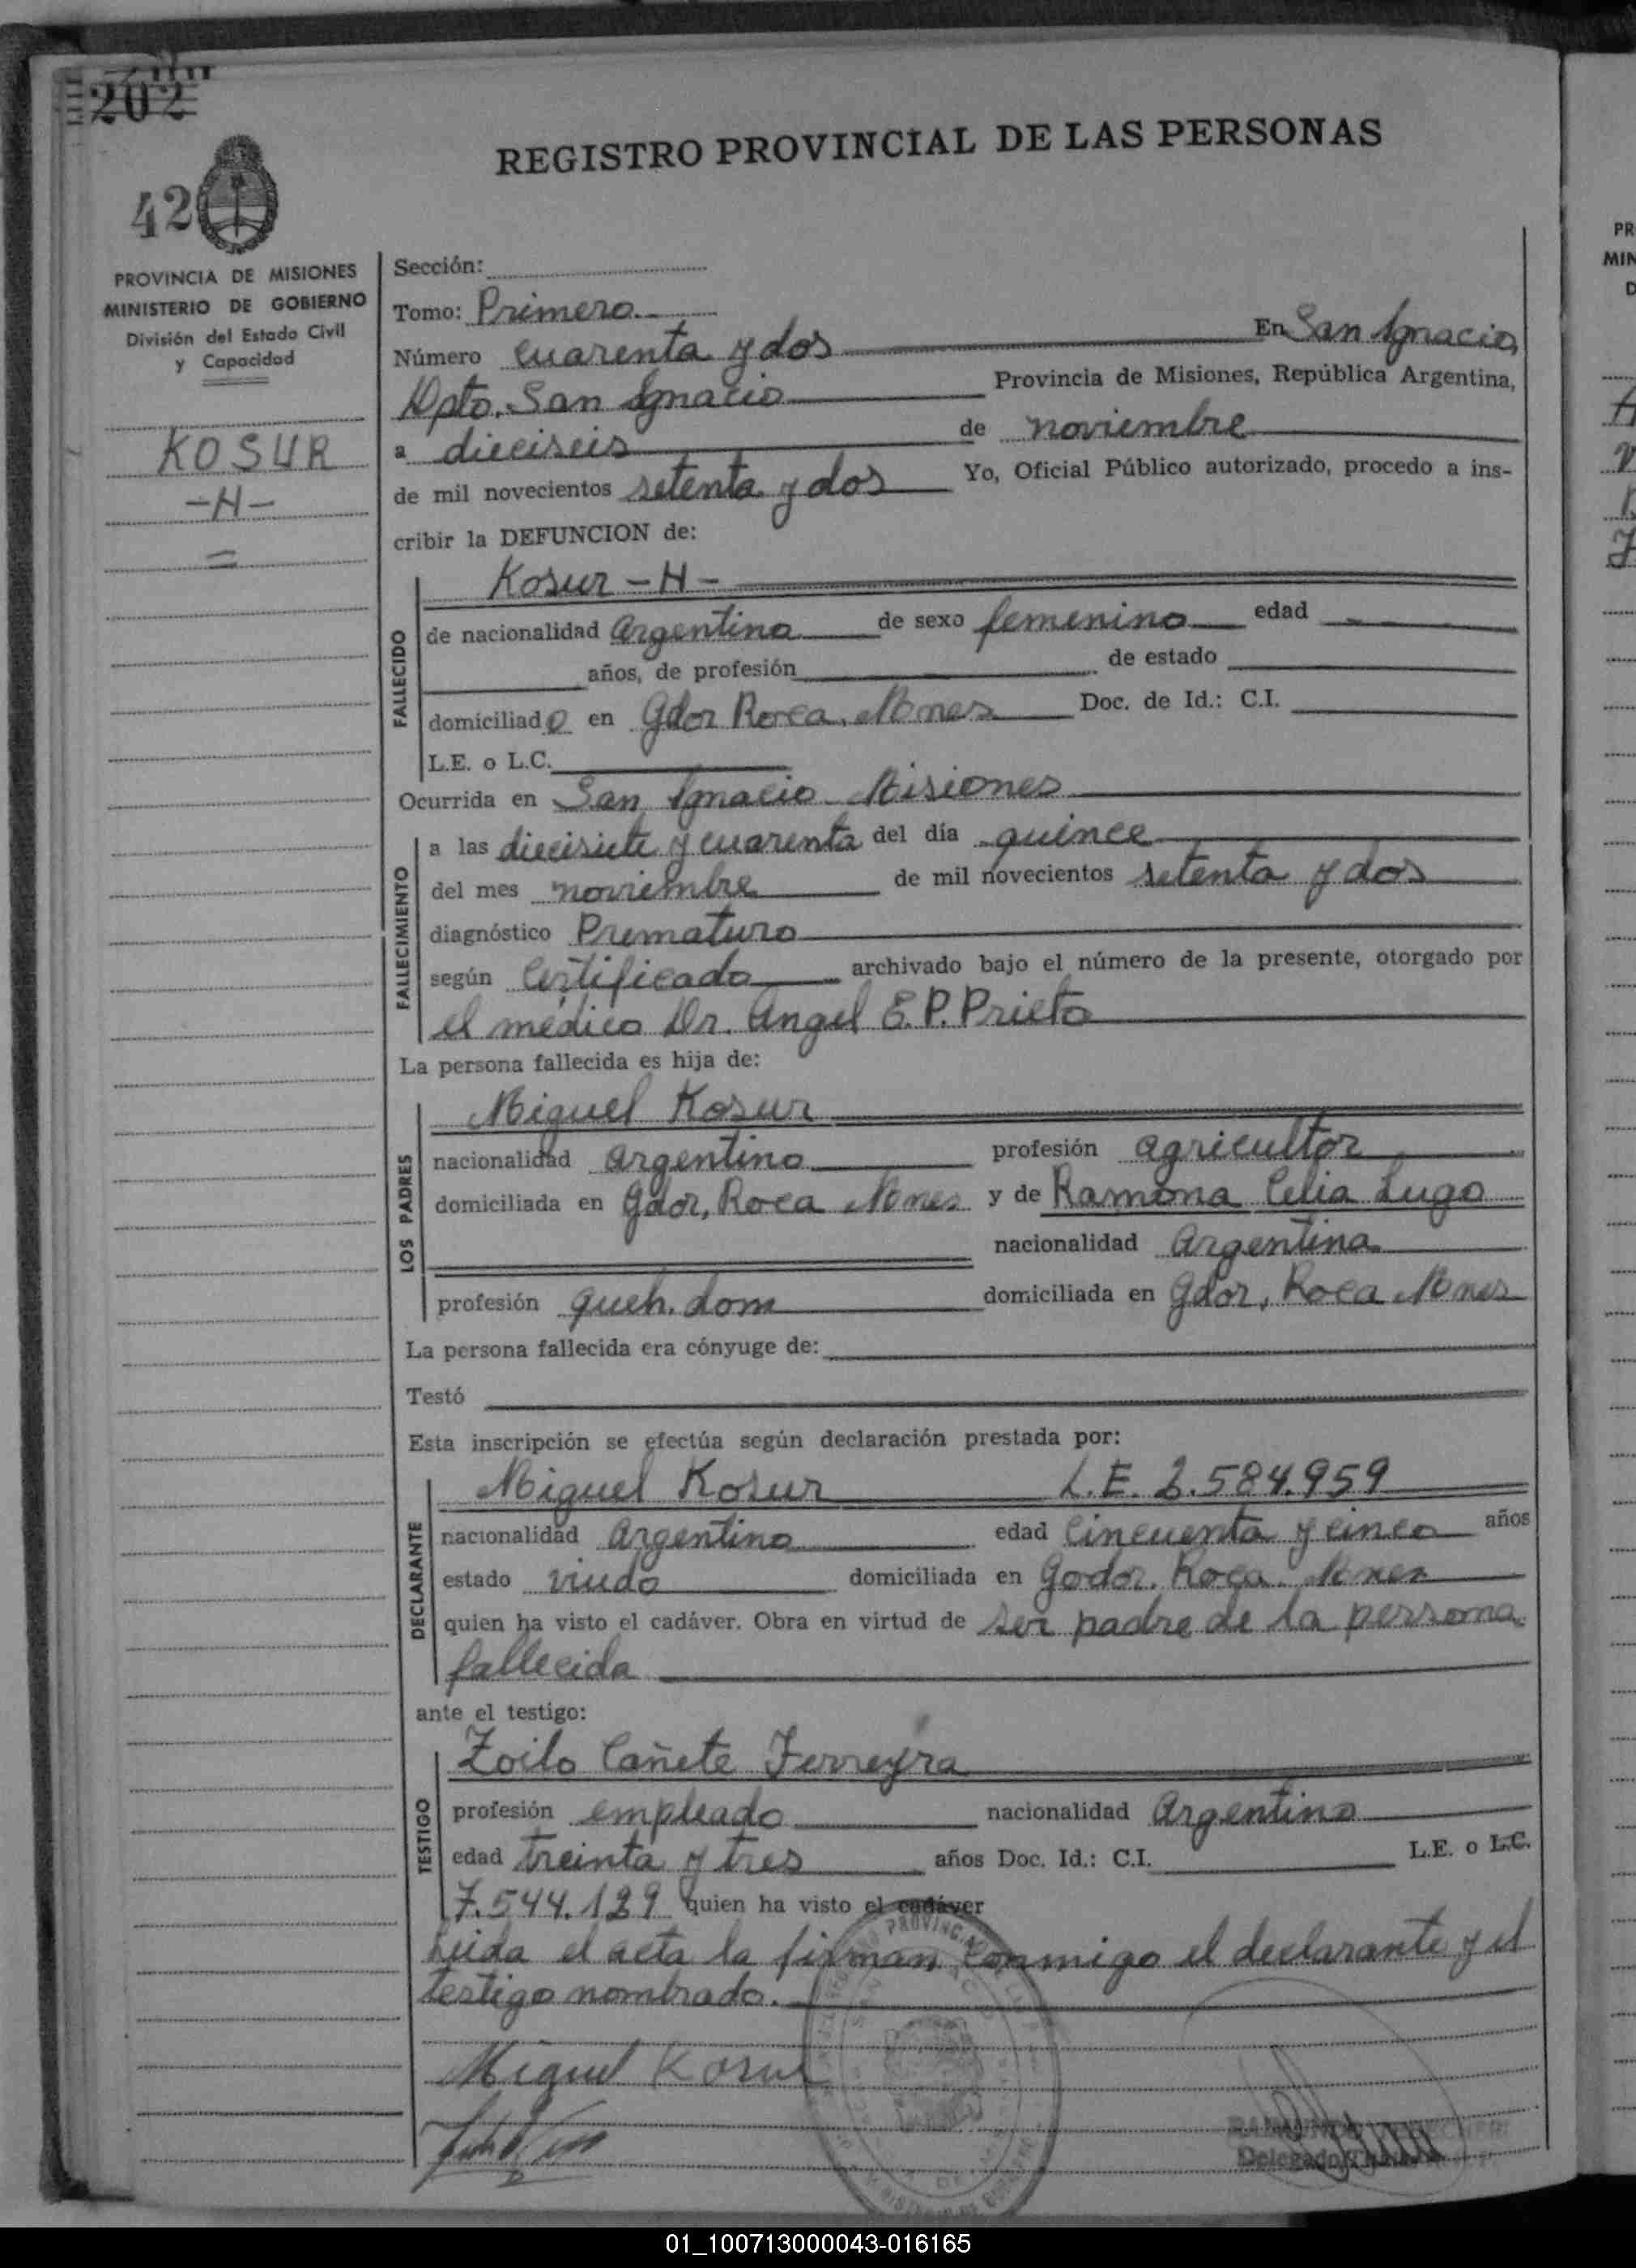 202
42
REGISTRO PROVINCIAL DE LAS PERSONAS
PROVINCIA DE MISIONES
MINISTERIO DE GOBIERNO
División del Estado Civil
y Capacidad
KOSUR
-H-
Sección:
Tomo: Primero
Número cuarenta y dos En San Ignacio,
Dpto. San Ignacio Provincia de Misiones, República Argentina,
a dieciseis de noviembre
de mil novecientos setenta y dos Yo, Oficial Público autorizado, procedo a ins-
cribir la DEFUNCION de:
FALLECIDO
Kosur - H -
de nacionalidad Argentina de sexo femenino edad
años, de profesión de estado
domiciliado en Gdor Roca, Mnes Doc. de Id.: C.I.
L.E. o L.C.
Ocurrida en San Ignacio Misiones
FALLECIMIENTO
a las diecisiete y cuarenta del día quince
del mes noviembre de mil novecientos setenta y dos
diagnóstico Prematuro
según Certificado archivado bajo el número de la presente, otorgado por
el médico Dr. Angel E.P. Prieto
La persona fallecida es hija de:
LOS PADRES
Miguel Kosur
nacionalidad argentino profesión agricultor
domiciliada en Gdor, Roca Mnes y de Ramona Celia Lugo
nacionalidad Argentina
profesión queh. dom domiciliada en Gdor, Roca Mnes
La persona fallecida era cónyuge de:
Testó
Esta inscripción se efectúa según declaración prestada por:
DECLARANTE
Miguel Kosur L.E. 2.584.959
nacionalidad Argentino edad cincuenta y cinco años
estado viudo domiciliada en Godor. Roca Mnes
quien ha visto el cadáver. Obra en virtud de ser padre de la persona
fallecida
ante el testigo:
TESTIGO
Zoilo Cañete Ferreyra
profesión empleado nacionalidad Argentino
edad treinta y tres años Doc. Id.: C.I. L.E. o L.C.
7.544.129 quien ha visto el cadáver
Leida el acta la firman conmigo el declarante y el
testigo nombrado.
Miguel Kosur
Delegado
PR
MIN
D
01_100713000043-016165